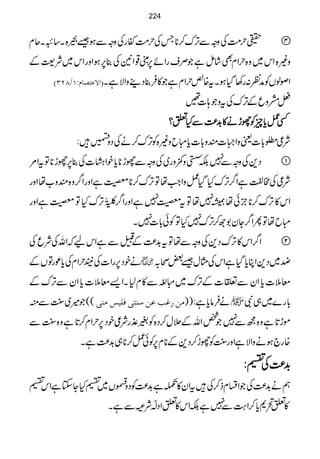 224
③ حقیقی حرمت کی وجہ سے ترک کرنا جس حرمت کی رفاکی وجہ سے ہو جیسے بحیرہ۔ سائبہ۔ حام
وغیرہ اس میں ہر وہ حرام شامل بھی ہے جو صرف رائے پر مبنی قوانین کی بنا پر ہو اور اس میں شریعت کے
اصولوں کو مدِنظر نہ رکھا گیا ہو۔ یہ خالص ہر حرام ہے جو کافر اپنے دین بنانے والا ہے۔ (الاعتصام: ۱/۳۲۸)
فعل مشروع کے ترک کی یہ وجوہات تھیں
کسی عمل یا چیز کو چھوڑنے کا بدعت سے کیا تعلق؟
شرعی مطلوبات یعنی واجبات یا مندوبات یا مباح وغیرہ کو ترک کرنے کی دو قسمیں ہیں:
① دین کی وجہ سے نہیں بلکہ سستی و کمزوری کی وجہ سے چھوڑنا یا خواہشات کی بنا پر چھوڑنا تو یہ امر
شرعی کی مخالفت ہے اگر ترک کیا گیا عمل واجب تھا تو ترک کرنا معصیت ہے اور اگر وہ مندوب تھا اور
اس کا ترک کرنا جزئی تھا ہمیشہ نہیں تھا تو یہ معصیت نہیں ہے اور اگر کلیۃً ترک کیا تو معصیت ہے اور
مباح تھا تو پھر اگر جان بوجھ کر ترک نہیں کیا تو کوئی بات نہیں۔
② اگر اس کا ترک دین کی وجہ سے تھا تو یہ بدعت کے قبیلے سے ہے اس لیے کہ اللہ کی شرع کی
ضد میں دین اپنایا گیا ہے اس کی مثال جیسے بعض صحابہ نے خود پر رات کی نیند حرام کی یا عورتوں کے
معاملات یا ان سے تعلقات کے ترک میں مبالغہ سے کام لیا۔ ایسے معاملات یا ان سے ترک کے
بارے میں ہی نبی ﷺ نے فرمایا ہے: ((من رغب عن سنتی فلیس منی)) جو میری سنت سے منہ
موڑتا ہے وہ مجھ سے نہیں جو شخص اللہ کے حلال کردہ کو بغیر عذر شرعی خود پر حرام کرتا ہے وہ سنت سے
خارج ہونے والا ہے اور سنت کو چھوڑ کر دین کے نام پر کوئی عمل کرنا ہی بدعت ہے۔
بدعت کی تقسیم:
ہم نے بدعت کی جو اقسام ذکر کی ہیں ان کا حکم بلکہ ہے بدعت کو دو قسموں میں تقسیم کیا جا سکتا ہے اس تقسیم
کا تعلق تحریم یا کراہت سے نہیں ہے بلکہ اس کا تعلق ادلہ شرعیہ سے ہے۔